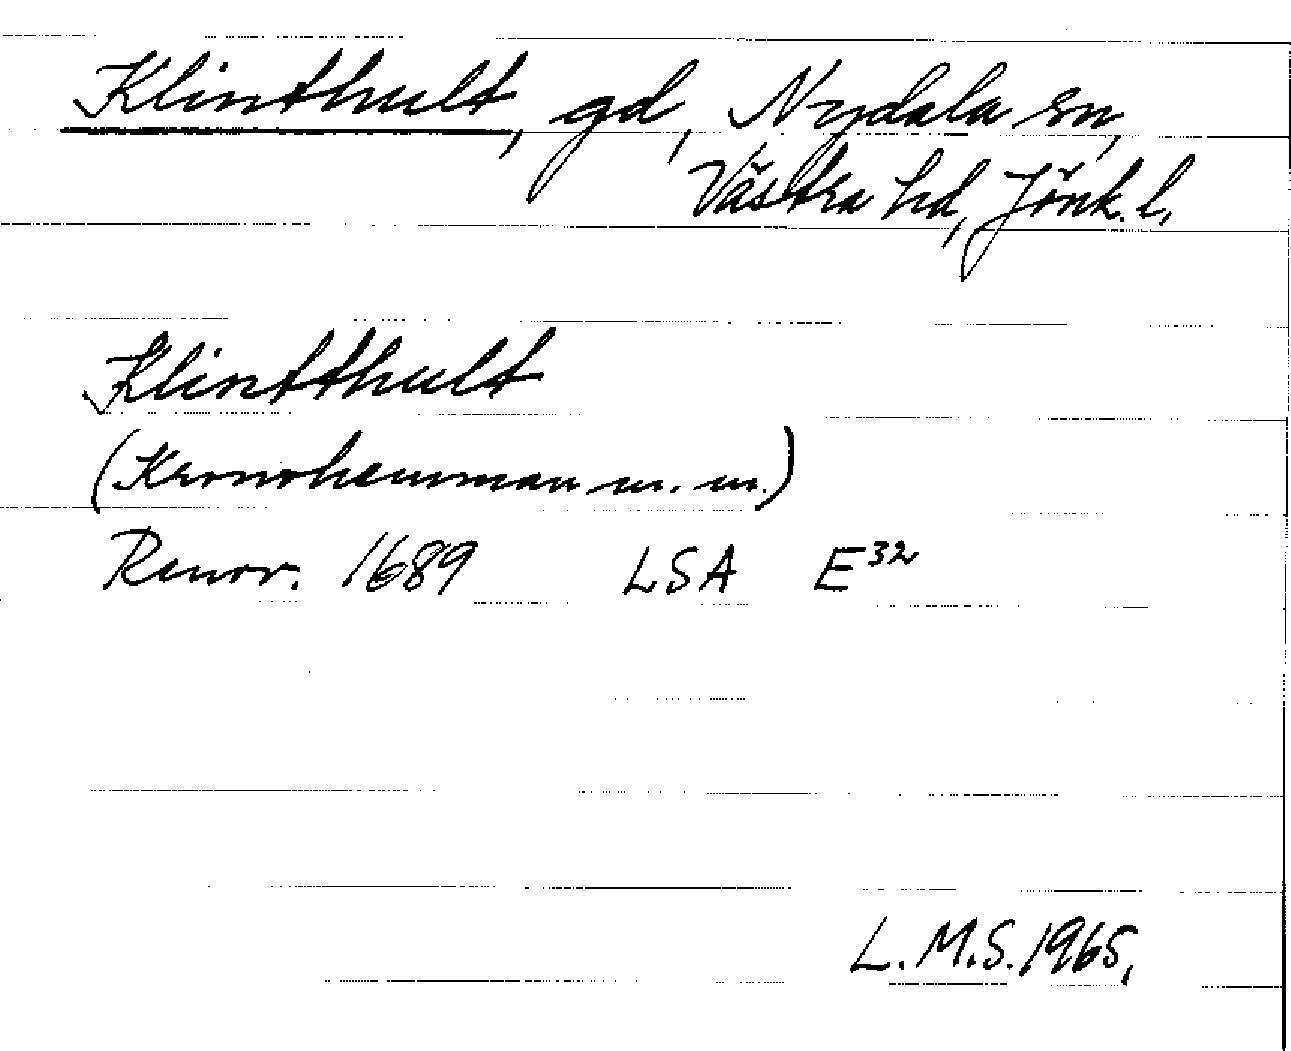 Klinthult, gd, Nydala sn,
Västra hd, Jönk. l.
Klintthult
(Kronohemman m. m.)
Renov. 1689 LSA E32
L.M.S. 1965.